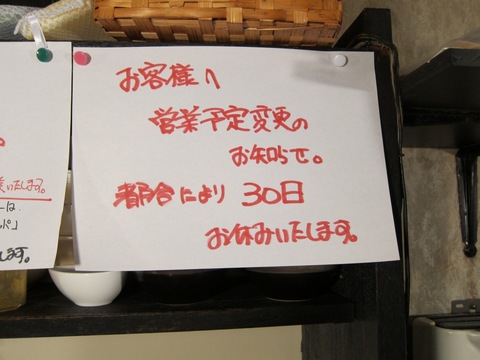 お客様へ
営業予定変更の
お知らせ。
都合により 30日
お休みいたします。
いたします。
ーは
します。